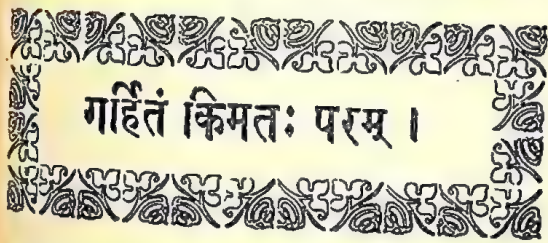 गर्हितं किमतः परम् ।